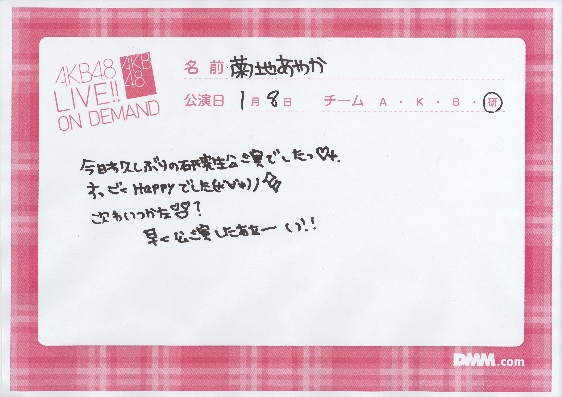 AKB48
LIVE!!
ON DEMAND
AKB
48
名前 菊地あやか
公演日 1月8日 チーム A・K・B・研
今日わ久しぶりの研究生公演でしたっ♡
すっごくHappyでした(*´∀`*))
次わいつかな?
早く公演したなぁー(>_<)!!
DMM.com